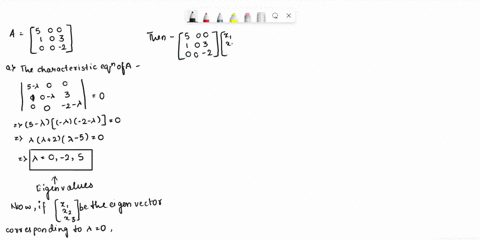 A = [5 0 0
1 0 3
0 0 -2]
a) The characteristic eqn of A -
|5-λ 0 0
1 0-λ 3
0 0 -2-λ| = 0
=> (5-λ)[(-λ)(-2-λ)] = 0
=> λ(λ+2)(λ-5) = 0
=> λ = 0, -2, 5
↑
Eigenvalues
Now, if [x₁
x₂
x₃] be the eigen vector
corresponding to λ=0,
Then - [5 0 0
1 0 3
0 0 -2] [x₁
x